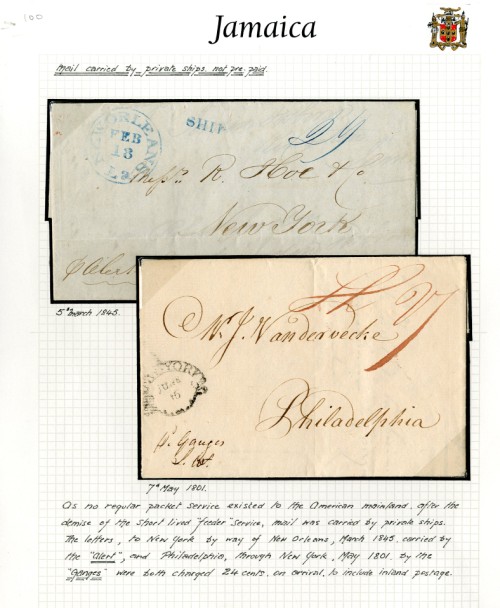 100
Jamaica
Mail carried by private ships, not pre-paid.
NEW ORLEANS
FEB
13
La
SHIP
Messrs. R. Hoe & Co
New York
p Alert
5th March 1845.
Mr. J. Vandervecke
Philadelphia
NEW YORK
16
p. Ganges
7th May 1801.
As no regular packet service existed to the American mainland, after the
demise of the short lived 'feeder' service, mail was carried by private ships.
The letters, to New York by way of New Orleans, March 1845, carried by
the "Alert", and Philadelphia, through New York, May 1801, by the
"Ganges" were both charged 24 cents, on arrival, to include inland postage.